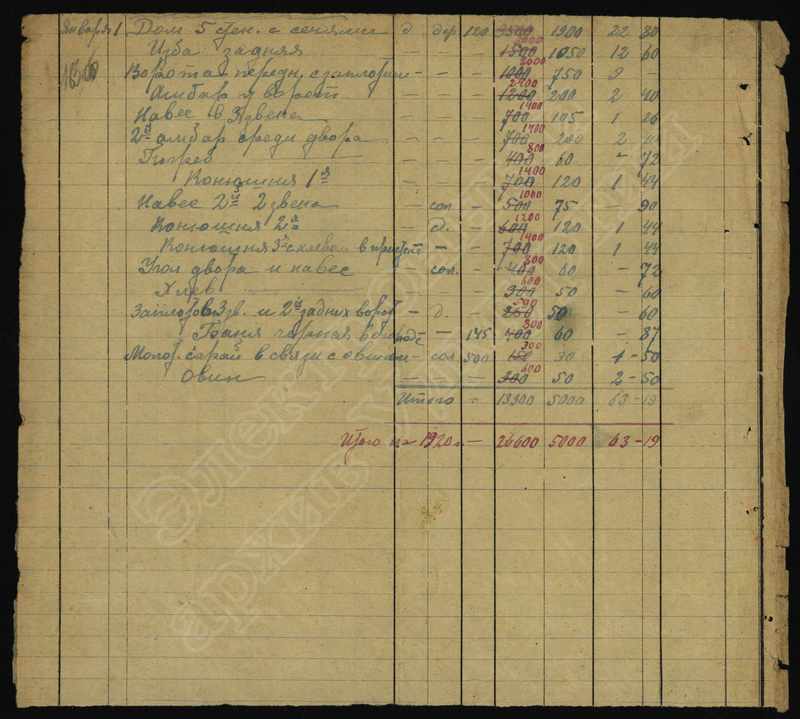 Января 1 Дом 5 стен. с сенями д дер 120 1900 22 80
Изба задняя — — — 1500 1050 12 60
Ворота передн. с заплотом — — — 2000 1000 750 9 —
Амбар у ворот — — — 2400 1200 200 2 40
Навес в 3 звена — — — 1400 700 105 1 26
2й амбар среди двора — — — 1400 700 200 2
Погреб — — — 800 400 60 — 72
Конюшня 1я — — — 1400 700 120 1 44
Навес 2й 2 звена — сол. — 1000 500 75 — 90
Конюшня 2я — д. — 1200 600 120 1 44
Конюшня 3я с хлевом в — — — 1400 700 120 1 44
Угол двора и навес — сол. — 800 400 60 — 72
Хлев — — — 600 300 50 — 60
Заплотов 3 зв. и 2й задних ворот — д. — 500 250 50 — 60
Баня черная в — — 145 800 400 60 — 87
Молот. сарай в связи с овином — сол. 500 300 150 30 1 — 50
Овин — — — 600 300 50 2 — 50
Итого — 13300 5000 63 — 19
Итого на 1920 г. — 26600 5000 63 — 19
Электр
архив